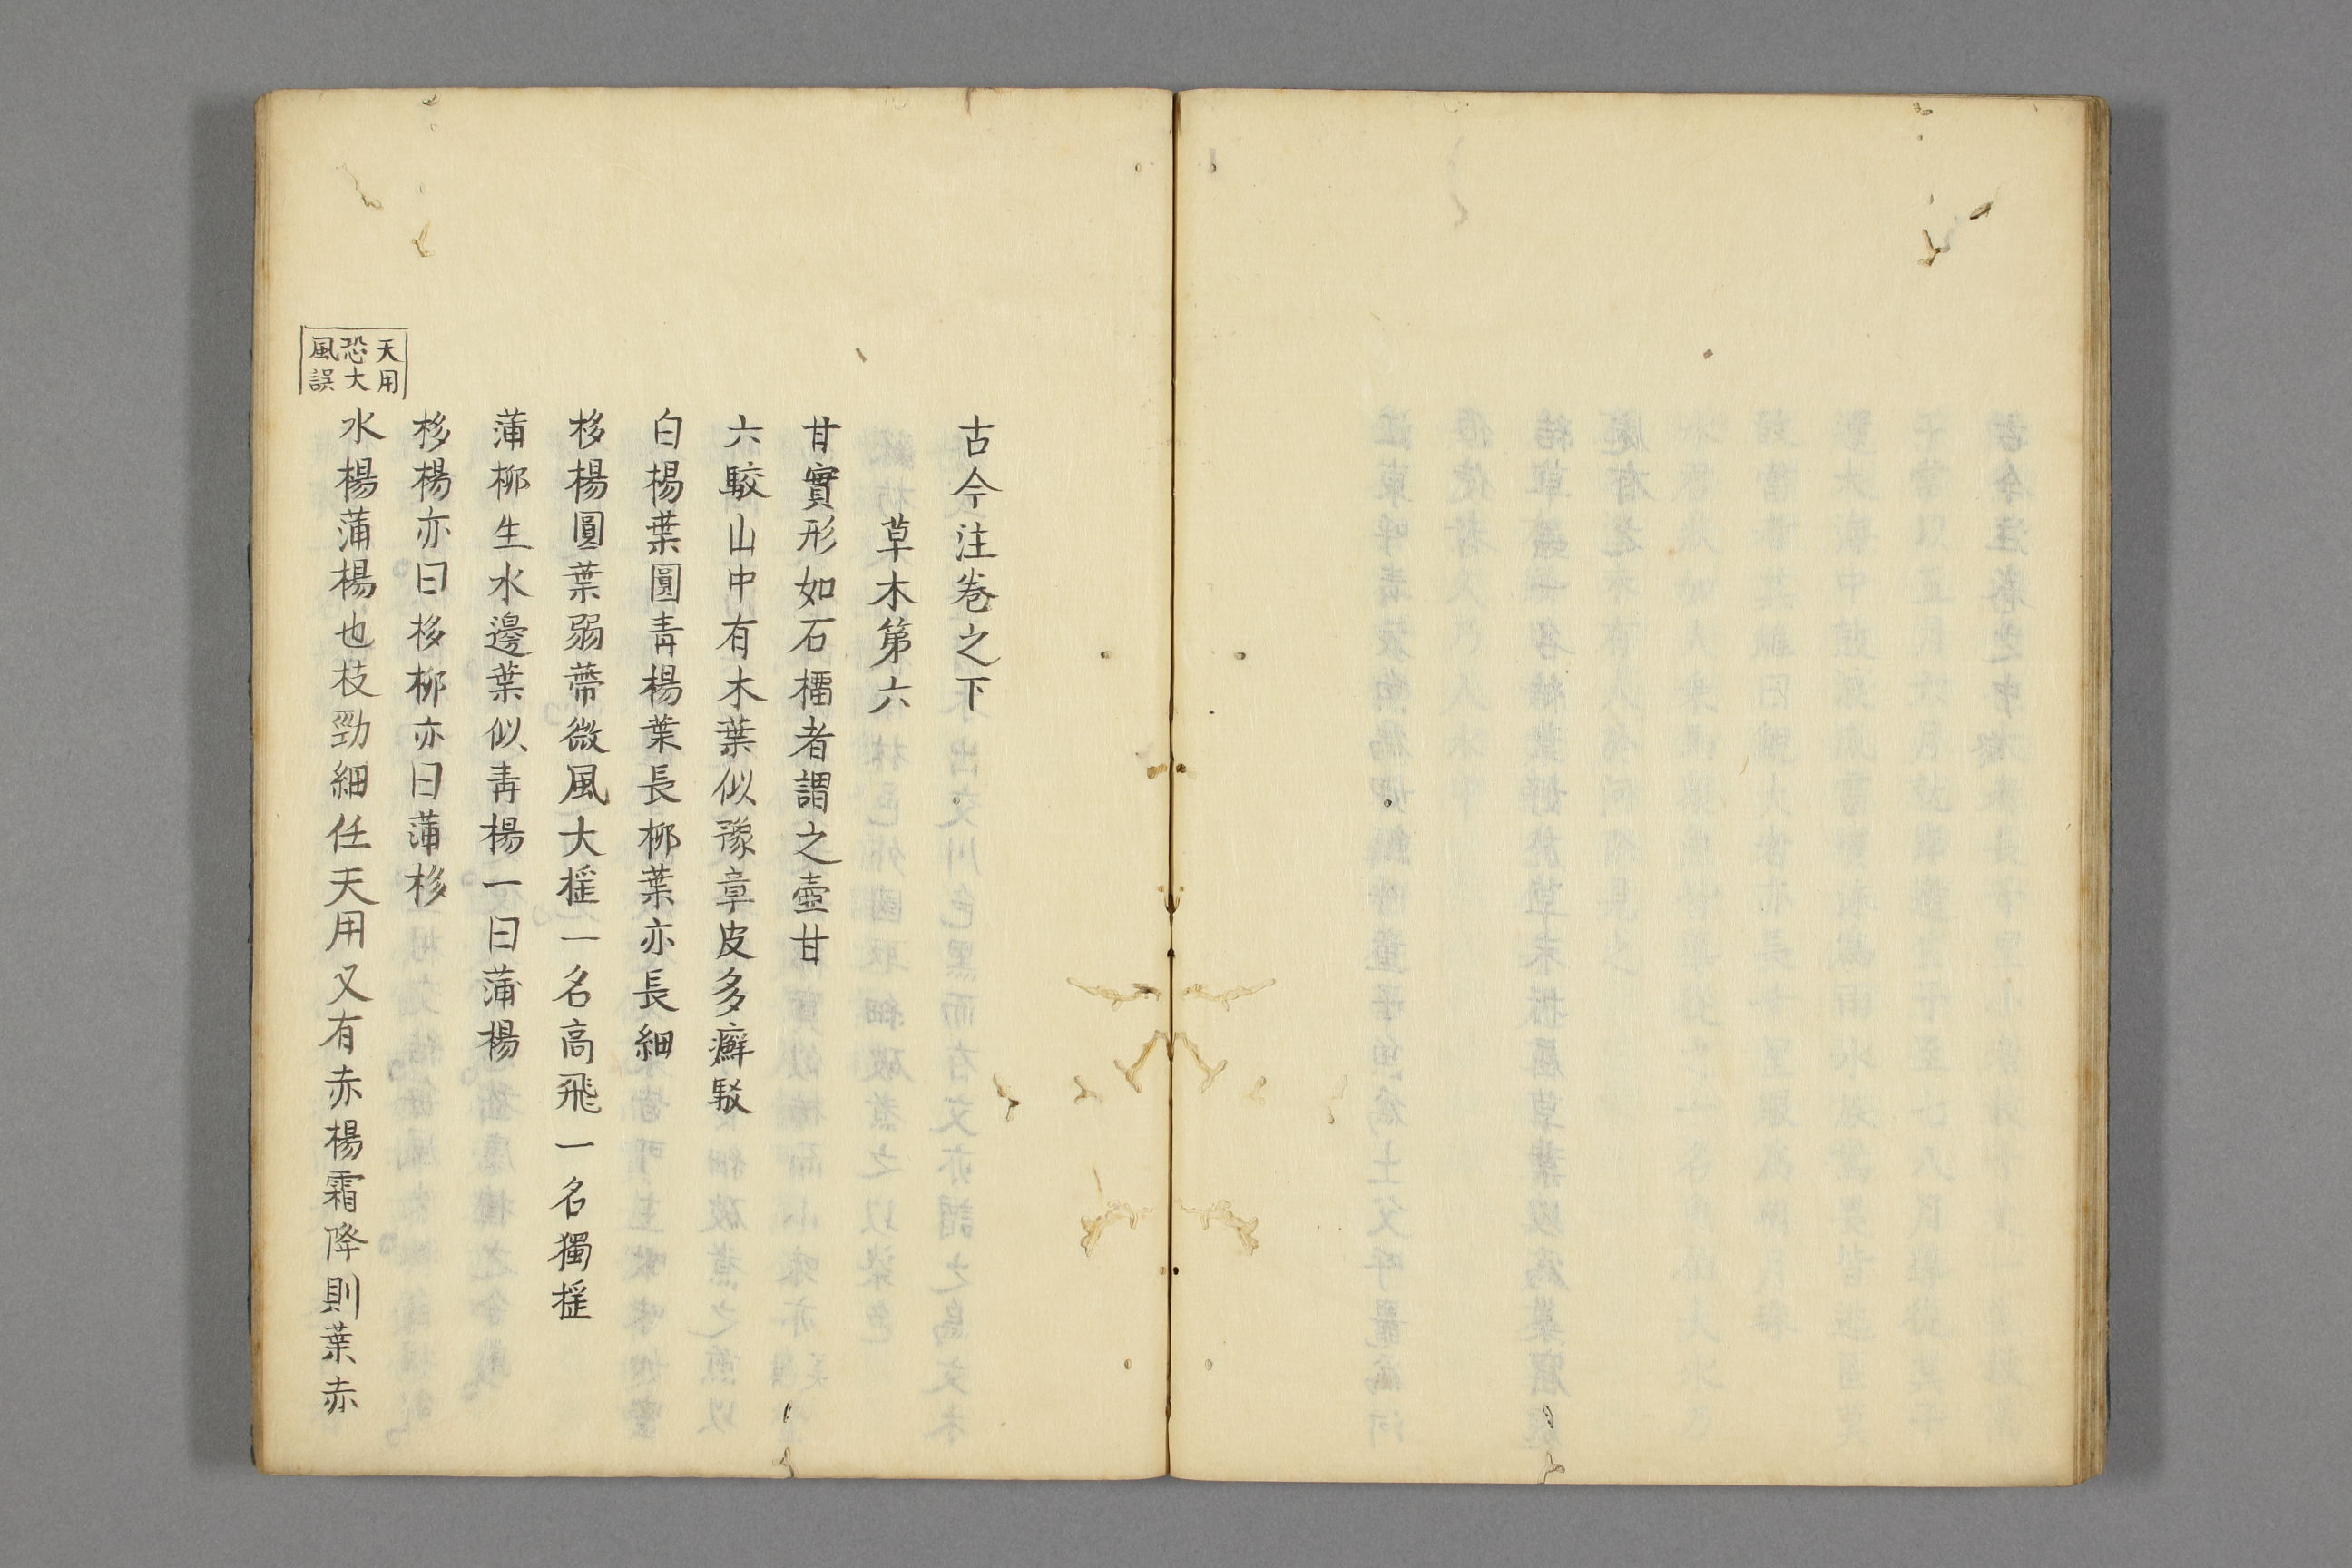 古今注卷之下
草木第六
甘實形如石橊者謂之壺甘
六駮山中有木葉似豫章皮多癬駁
白楊葉圓青楊葉長柳葉亦長細
栘楊圓葉弱蔕微風大搖一名高飛一名獨搖
蒲柳生水邊葉似青楊一曰蒲楊
栘楊亦曰栘柳亦曰蒲栘
水楊蒲楊也枝勁細任天用又有赤楊霜降則葉赤
天用
恐大
風誤